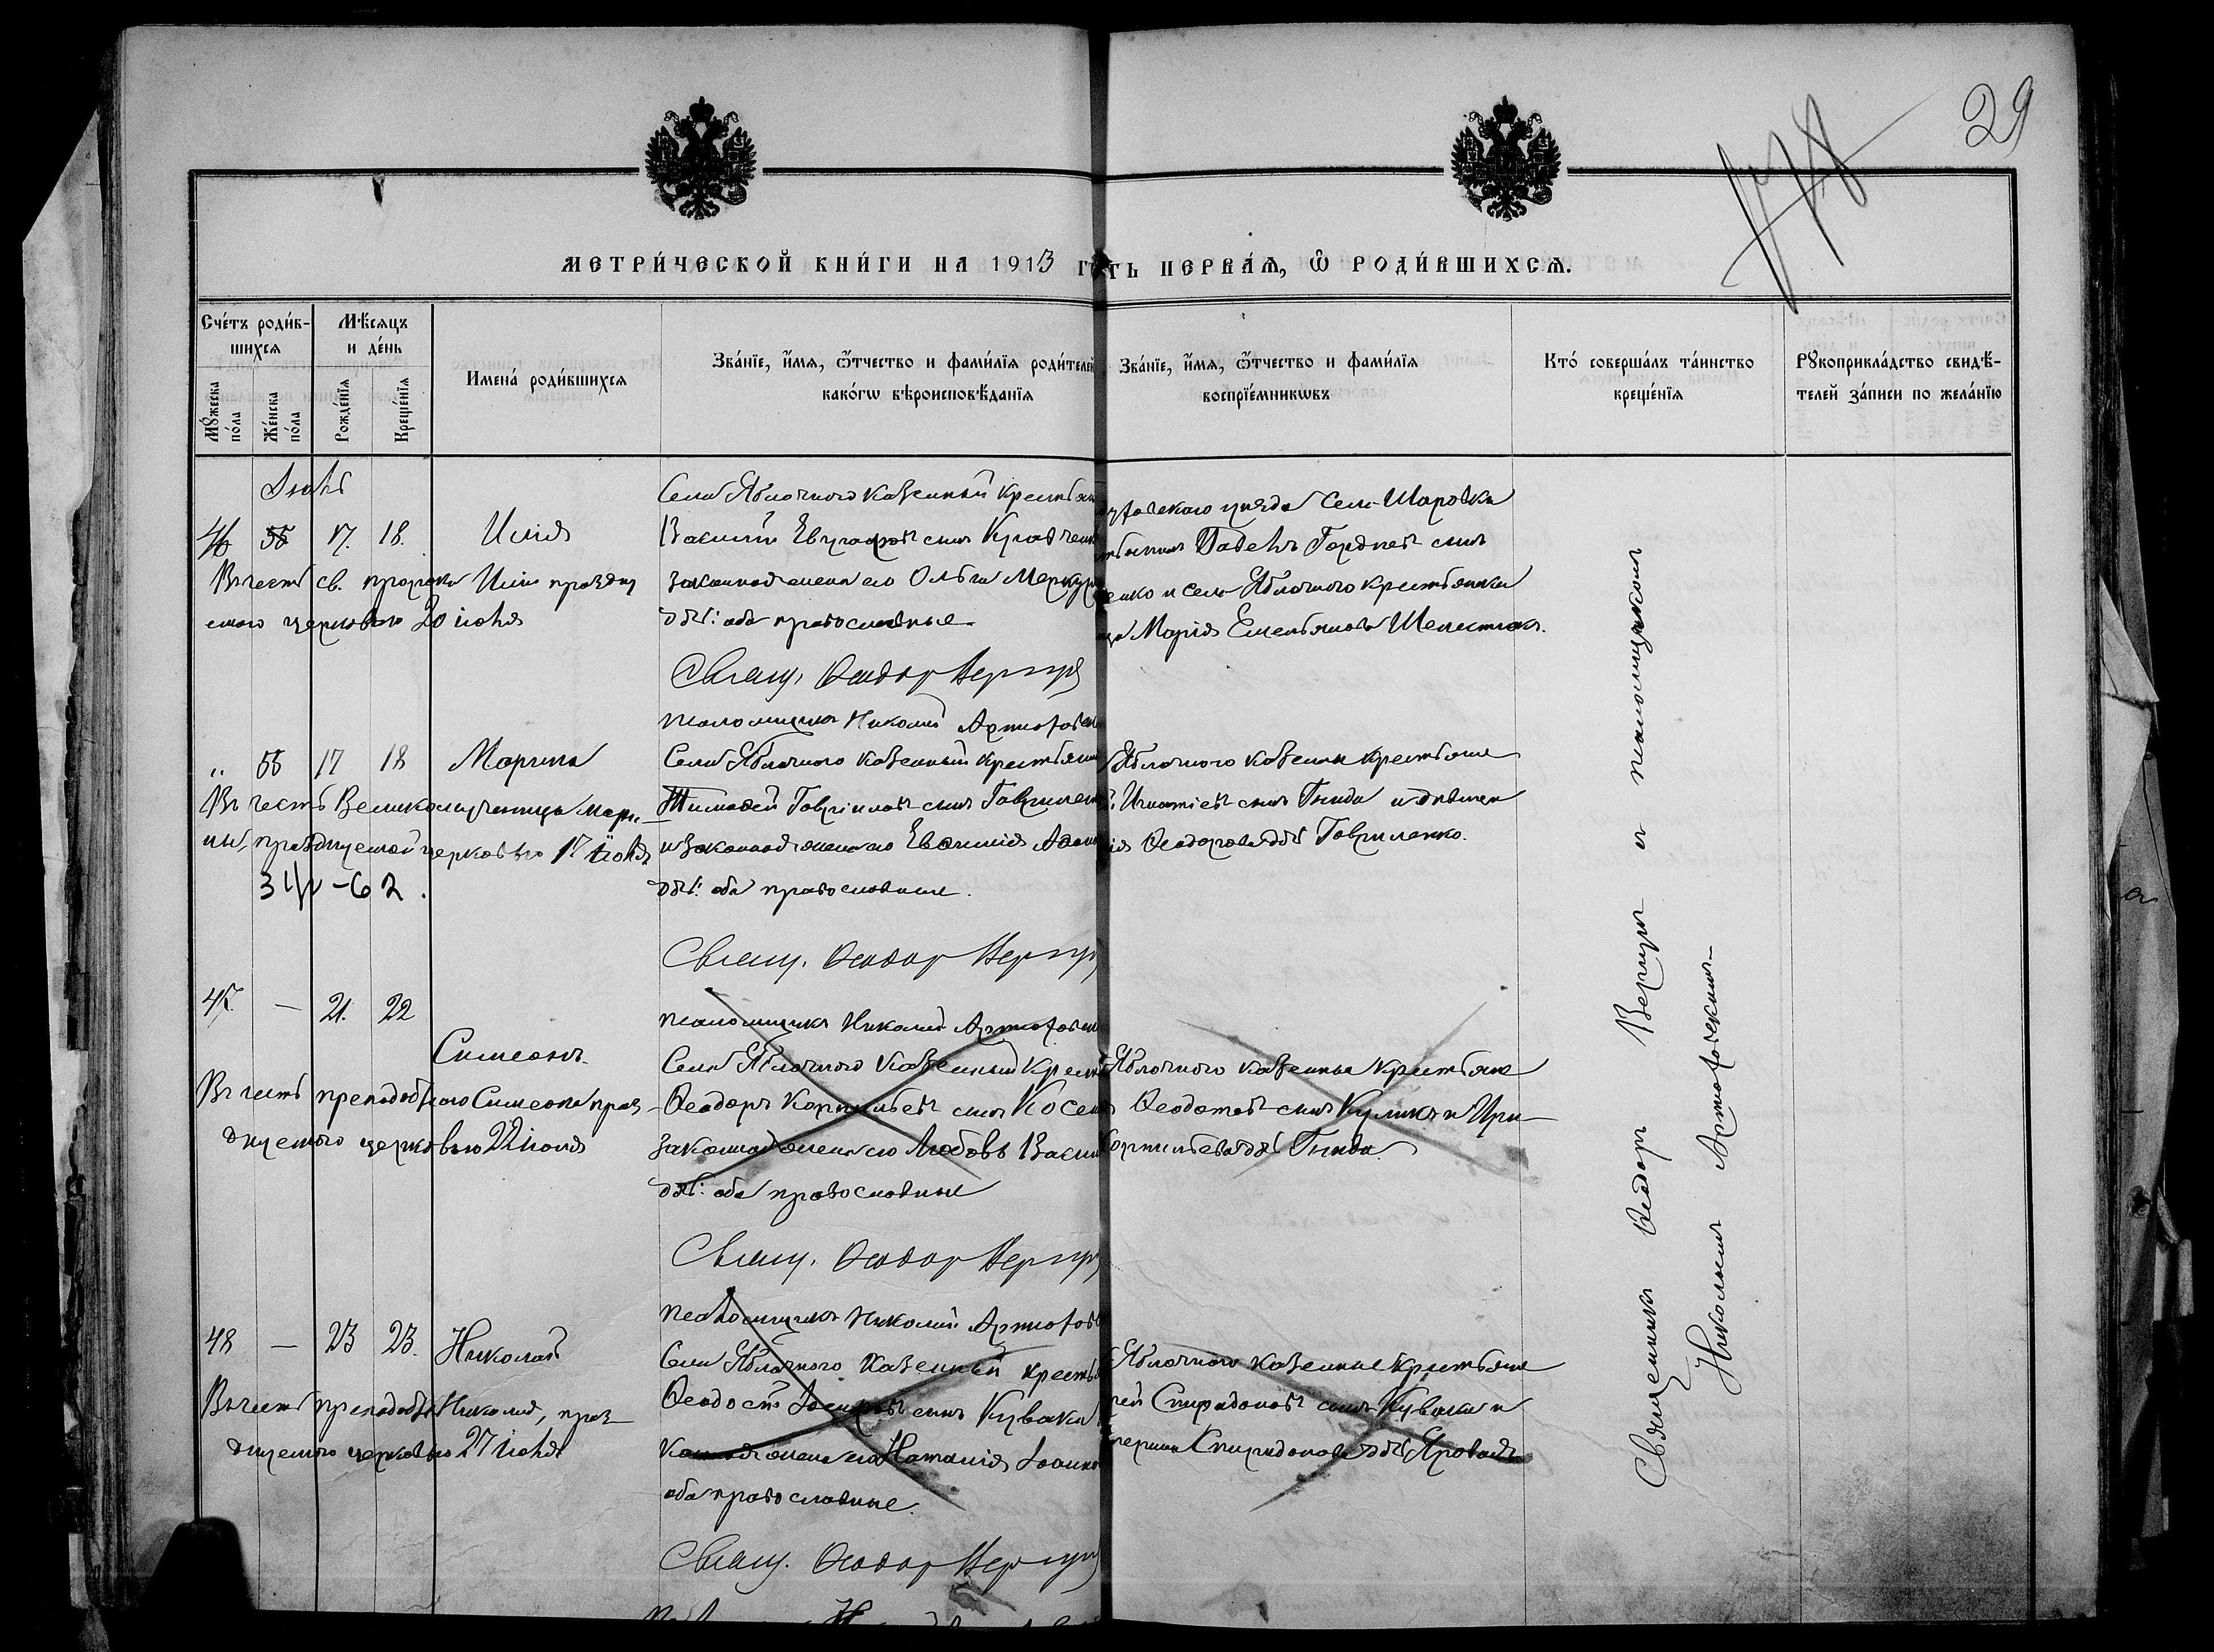 29
МЕТРИ́ЧЕСКОЙ КНИ́ГИ НА 1913 Г ТЬ ПЕРВА́Ѧ, Ѽ РОДИ́ВШИХСѦ.
Сче́тъ роди́в-
шихсѧ
Мꙋ́жеска по́ла
Же́нска по́ла
Мѣ́сѧцъ
и де́нь
Рожде́нїѧ
Креще́нїѧ
Имена́ роди́вшихсѧ
Зва́нїе, и҆́мѧ, ѻ҆́тчество и фами́лїѧ роди́телей
како́гѡ вѣроисповѣ́данїѧ
Зва́нїе, и҆́мѧ, ѻ҆́тчество и фами́лїѧ
воспрїе́мникѡвъ
Кто́ соверша́лъ та́инство
креще́нїѧ
Рꙋкоприкла́дство свидѣ́-
телей за́писи по жела́нїю
Іюль
46 55 17. 18. Илія
Въ честь св. пророка Иліи праздну
емаго церковью 20 іюля
Села Яблочного казенный крестьян
Василій Евграфовъ сынъ Кравчен
законная жена его Ольга Меркур
обѣ: оба православные
Свящ. Ѳеодор Вергун
псаломщикъ Николай Артюховск
уѣзда села Шаровки
Павелъ Гордѣевъ сынъ
енко и села Яблочного крестьянка
Марія Емельянова Шепетяк.
„ 55 17 18 Марина
Въ честь Великомученицы Мари-
ны, празднуемой церковью 17 іюля
31/V-62.
Села Яблочного казенный крестьянин
Тимоѳей Гавріиловъ сынъ Гаврилен
и законная жена его Евѳимія
обѣ: оба православные.
Свящ. Ѳеодор Вергун
псаломщикъ Николай Артюховск
Яблочного казенные крестьяне
Игнатіевъ сынъ Гнида и дѣвица
ія Ѳеодорова Гавриленко.
47. — 21. 22
Симеонъ.
Въ честь преподобнаго Симеона праз-
днуемаго церковью 22 іюля
Села Яблочного казенный крест
Ѳеодоръ Корнильевъ сынъ Косен
законная жена его Любовь Васил
обѣ: оба православные
Свящ. Ѳеодор Вергун
псаломщикъ Николай Артюхов
Яблочного казенные крестьяне
Ѳеодотовъ сынъ Куликъ и Ири-
Корнильева Гнида.
48 — 23 23. Николай
Въ честь преподобн Николая, праз-
днуемаго церковью 27 іюля
Села Яблочного казенный крестья
Ѳеодосій Іосифовъ сынъ Кувака
жена его Наталія Іоанно
оба православные.
Свящ. Ѳеодор Вергун
Яблочного казенные крестьяне
рей Спиридоновъ сынъ Кувака и
терина Спиридонова Яровая
Священникъ Ѳеодоръ Вергунъ и псаломщикомъ
Николаемъ Артюховскимъ